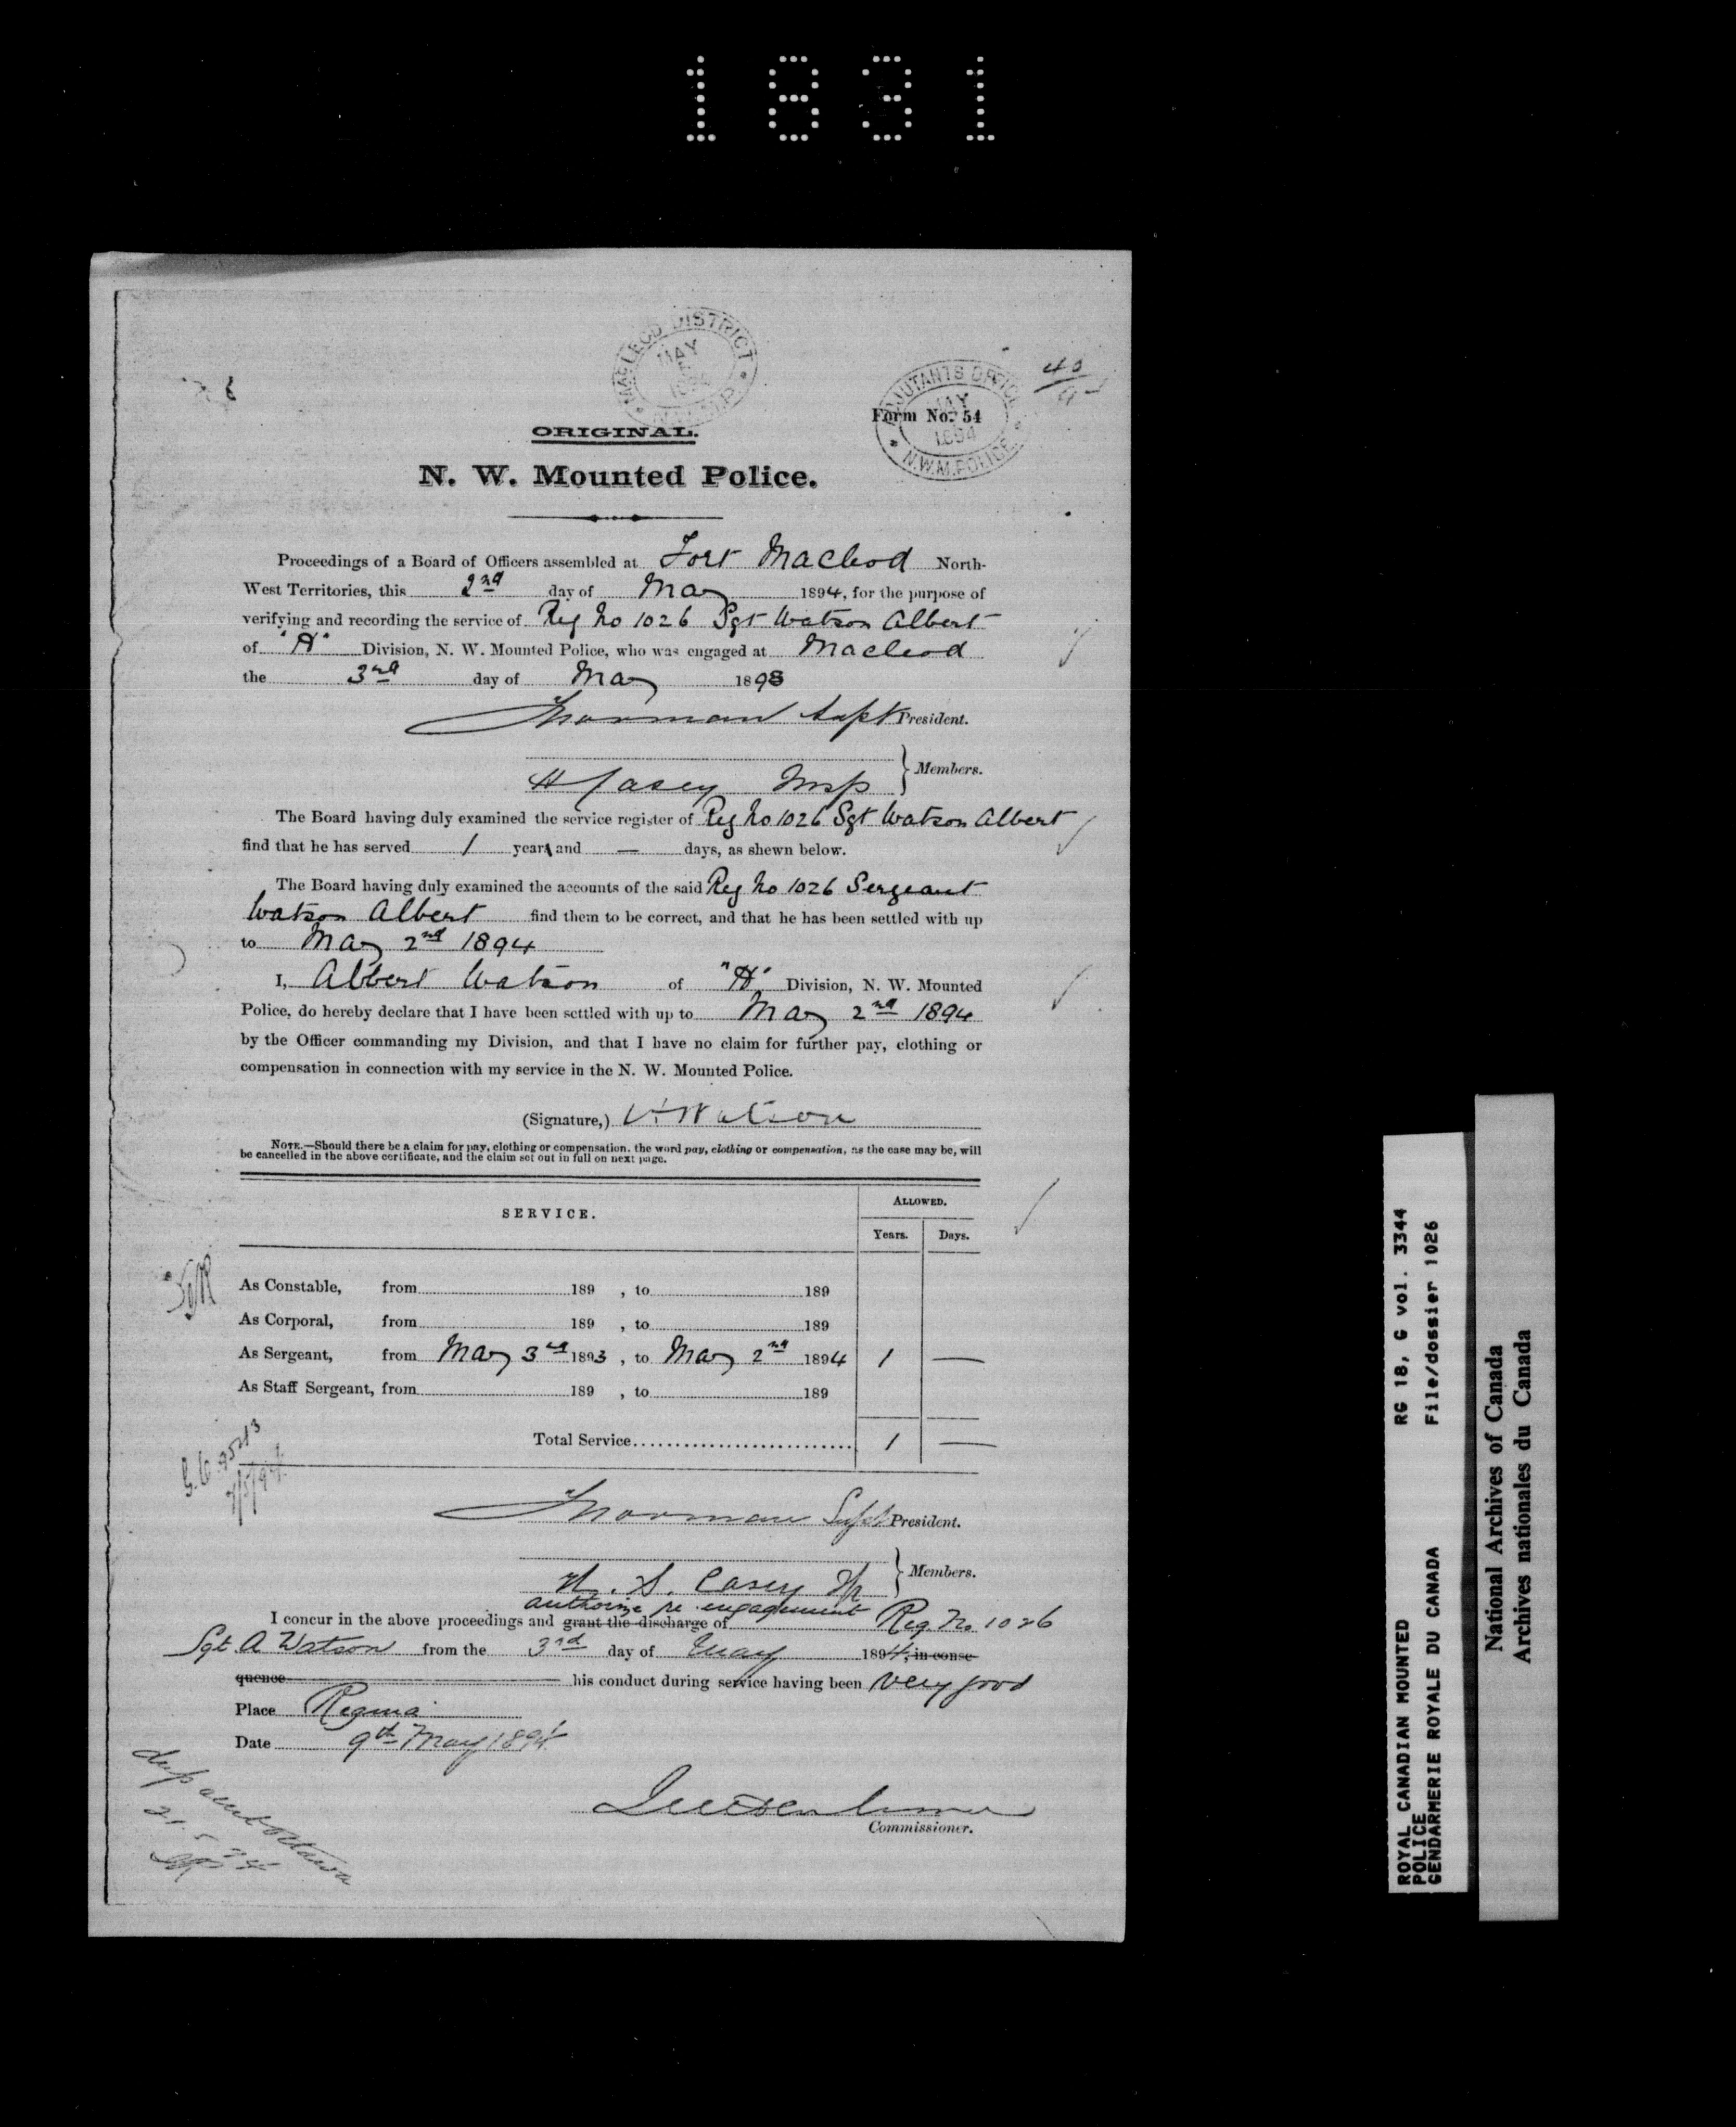 1831
MACLEOD DISTRICT
MAY
1894
N.W.M.P.
ADJUTANTS OFFICE
MAY
1894
N.W.M.POLICE
Form No. 54
ORIGINAL.
N. W. Mounted Police.
Proceedings of a Board of Officers assembled at Fort Macleod North-
West Territories, this 2nd day of May 1894, for the purpose of
verifying and recording the service of Reg No 1026 Sgt Watson Albert
of "H" Division, N. W. Mounted Police, who was engaged at Macleod
the 3rd day of May 1893
Supt President.
Casey Insp Members.
The Board having duly examined the service register of Reg No 1026 Sgt Watson Albert
find that he has served 1 year and — days, as shewn below.
The Board having duly examined the accounts of the said Reg No 1026 Sergeant
Watson Albert find them to be correct, and that he has been settled with up
to May 2nd 1894
I, Albert Watson of "H" Division, N. W. Mounted
Police, do hereby declare that I have been settled with up to May 2nd 1894
by the Officer commanding my Division, and that I have no claim for further pay, clothing or
compensation in connection with my service in the N. W. Mounted Police.
(Signature,) A Watson
NOTE.—Should there be a claim for pay, clothing or compensation, the word pay, clothing or compensation, as the case may be, will
be cancelled in the above certificate, and the claim set out in full on next page.
SERVICE.
ALLOWED.
Years. Days.
As Constable, from 189 , to 189
As Corporal, from 189 , to 189
As Sergeant, from May 3rd 1893 , to May 2nd 1894 1 —
As Staff Sergeant, from 189 , to 189
Total Service 1 —
Supt President.
Casey Members.
authorize re-engagement
I concur in the above proceedings and grant the discharge of Reg. No 1026
Sgt. A Watson from the 3rd day of May 1894, in conse-
quence his conduct during service having been very good
Place Regina
Date 9th May 1894
Commissioner.
ROYAL CANADIAN MOUNTED
POLICE
GENDARMERIE ROYALE DU CANADA
RG 18, G vol. 3344
File/dossier 1026
National Archives of Canada
Archives nationales du Canada